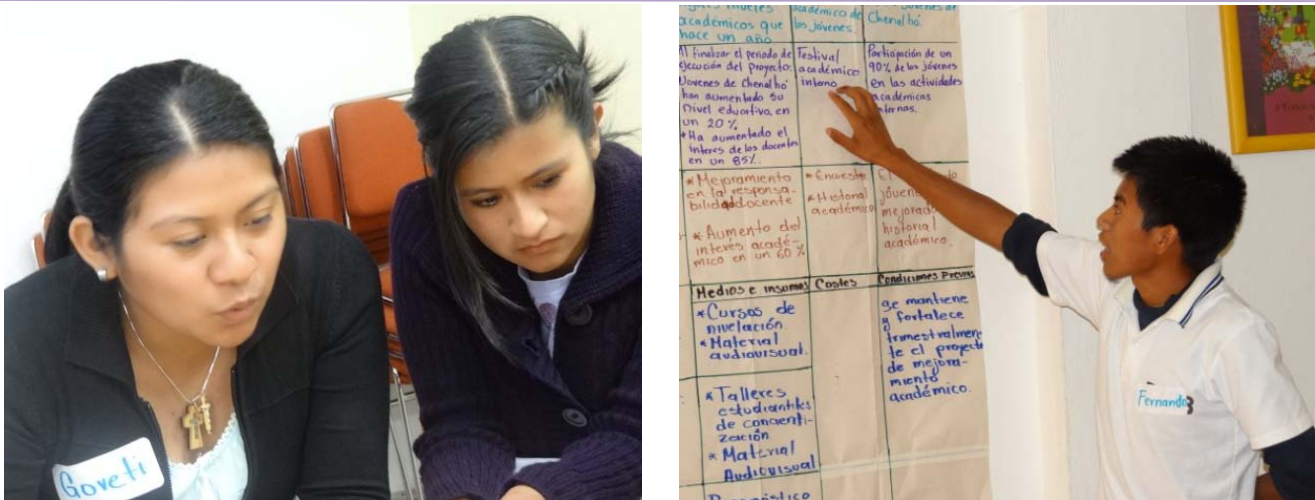 Goveti
académicos que
hace un año
académico de
los jóvenes.
jóvenes de
Chenalhó.
Al finalizar el periodo de
ejecución del proyecto:
Jovenes de Chenalhó
han aumentado su
nivel educativo, en
un 20 %
*Ha aumentado el
interes de los docentes
en un 85%.
Festival
académico
interno
Participación de un
90% de los jóvenes
en las actividades
académicas
internas.
*Mejoramiento
en la responsa-
bilidad docente
*Aumento del
interés acadé-
mico en un 60 %
*Encuestas
*Historial
académico
El
jóvenes
mejorado
historial
académico.
Medios e insumos
Costes
Condiciones Previas
*Cursos de
nivelación.
*Material
audiovisual.
se mantiene
y fortalece
trimestralmen-
te el proyecto
de mejora-
miento
académico.
*Talleres
estudiantiles
de concenti-
zación
*Material
Audiovisual
Fernando